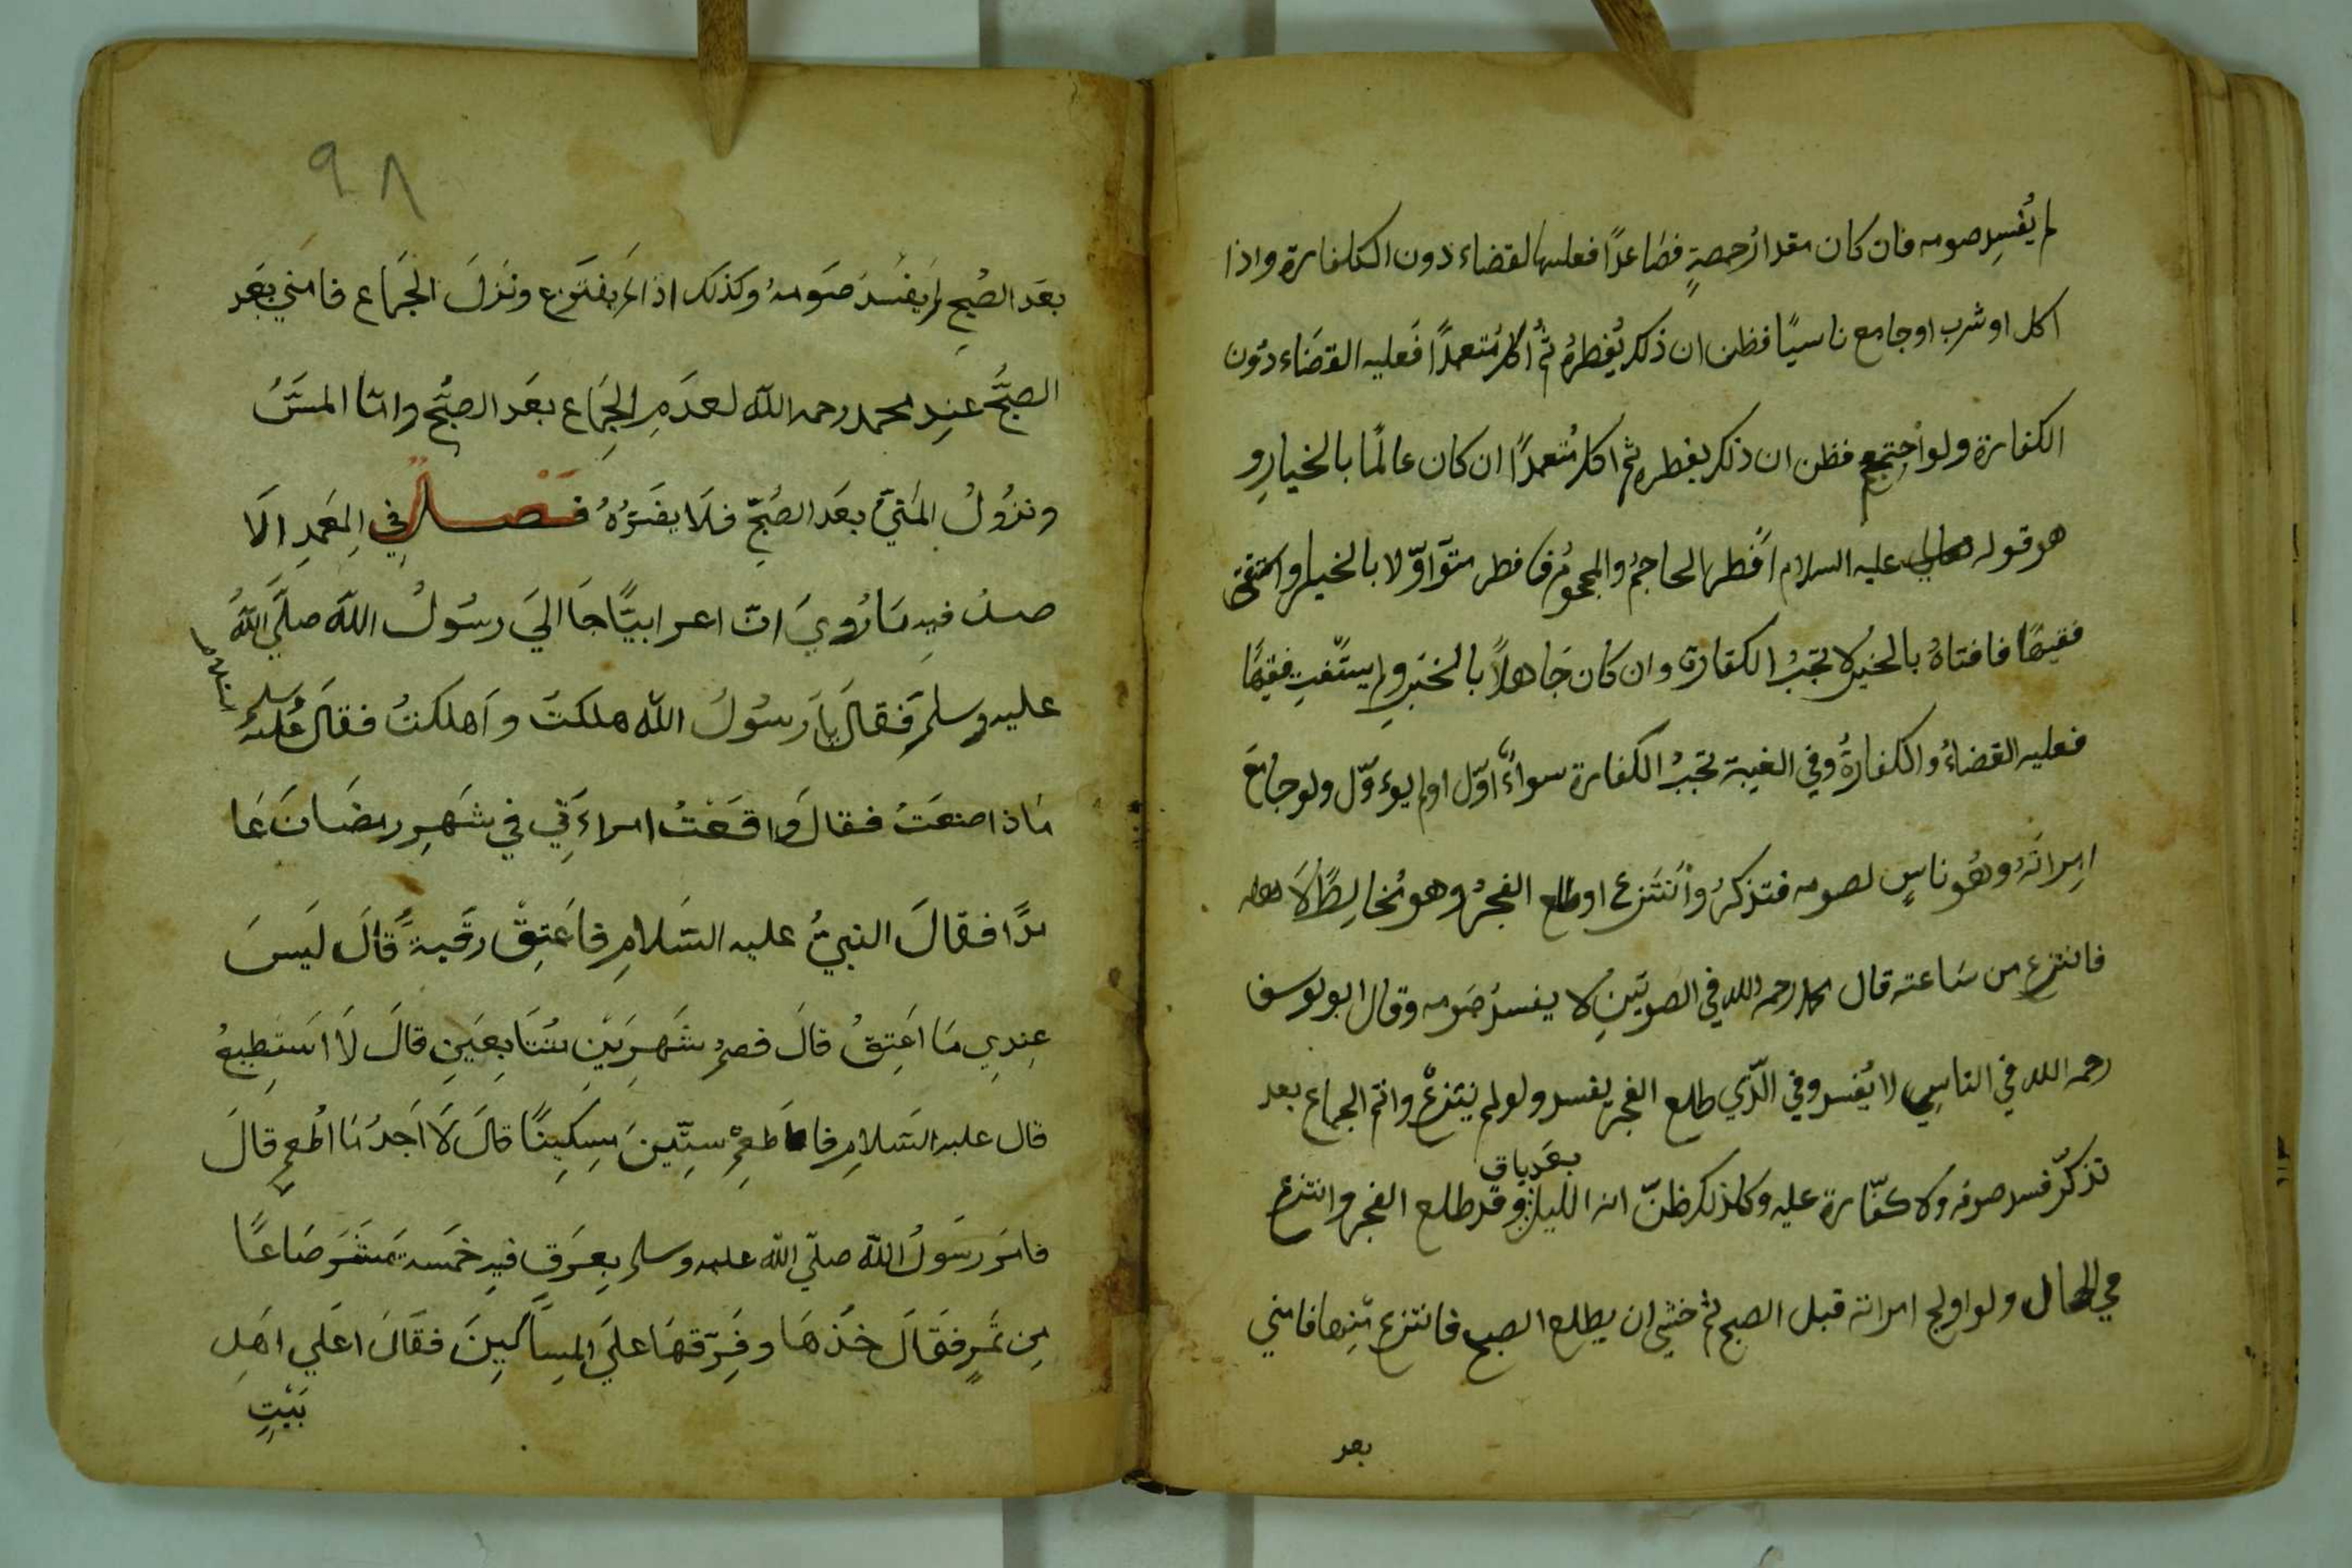 لم يُفسِد صومه فان كان مقدارُ حصةٍ فصَاعدًا فعليه القضاء دون الكفارة واذا
اكل او شرب او جامع ناسيًا فظن ان ذلك يُفطرهُ ثمُ اكل مُتعمدًا فَعليه القضَاء دوُن
الكفارة ولو احتجم فظن ان ذلك يفطره ثم اكل مُتعمدًا ان كان عالمًا بالخيارِ و
هو قوله عليه السلام افطر الحاجمُ والمحجومُ فافطر متوّاوّلا بالخيار واستفتى
فقيهًا فافتاهُ بالخبر لا تجبُ الكفارة وان كان جَاهلاً بالخبَر ولم يستفتِ فقيهًا
فعليه القضاءُ والكفارةُ وفي الغيبة تجبُ الكفارة سواءً اوّل اولم يوءوّل ولو جامَعَ
امِراتَهُ وهُو ناسٍ لصومه فتذكرُ وانتَزع او طلع الفجرُ وهو مُخالِطًا لاَهله
فانتزع من سَاعته قال محمد رحمه الله في الصورتينِ لا يفسدُ صَومه وقال ابو يوسف
رحمه الله في الناسِي لا يُفسد وفي الّذي طلع الفجر يفسد ولولم ينتزعْ واتم الجماع بعد
تذكّر فسد صومُه ولا كفّارة عليه وكذلك ظنّ انه الليل بعَد باق وقد طلع الفجر وانتزع
في الحال ولو اولج امراته قبل الصبح ثم خشي ان يطلع الصبح فانتزع منِها فامني
بعد
٩٨
بعَد الصُبحِ لم يَفسُدَ صَومهُ وكذلك اذا لم يفتَرع ونَزلَ الجَماع فامنَي بَعَد
الصبَّح عنِد محمد رحمه الله لعدَمِ الجِمَاع بعَد الصبَّح وامّا المسَّنُ
ونزُولُ المَنيّ بعَد الصُبَحِ فلَا يضَرّهُ فَصْلٌ في المعَمدِ الَا
صلُ فيِه مَا رُويَ انّ اعرابيًّا جَا الَي رسُولُ اللّهَ صلَّي اللّهُ
عليه وسلم فقالَ يا رَسُولُ اللّه هلكتَ واَهلكتُ فقالَ عُليهُ
السلام
مَاذا صنعَتَ فقالَ وَاقعَتُ امراءَتي في شَهرِ رمضَانَ عَا
مدًا فقالَ النبيُّ عليه السَلامِ فاعَتِقْ رقَبةً قَالَ ليَسَ
عِندِي مَا اعَتِقُ قالَ فصمُ شَهرَينِ مُتَتَابِعَينِ قالَ لاَ استَطِيعُ
قال عليه السَلامِ فاطَعمْ سِتّينَ مِسكِينًا قالَ لاَ اَجدُ مَا اُطعمِ قالَ
فامَر رسَولُ اللّه صلّي اللّه عليه وسلم بِعرَقٍ فيهِ خمَسة عَشَرَ صَاعًا
مِن تَمرٍ فقالَ خُذهَا وفَرِّقهَا علَي المِسَاكينَ فقَالَ اعلَي اهَلِ
بَيْتٍ